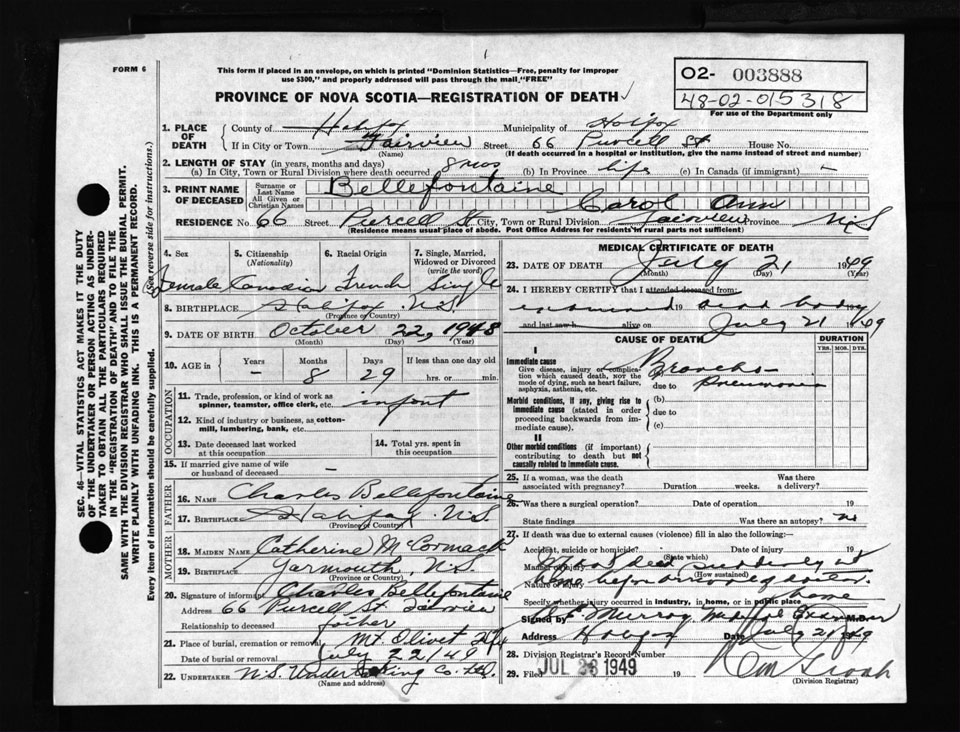 FORM 6
This form if placed in an envelope, on which is printed "Dominion Statistics—Free, penalty for improper
use $300," and properly addressed will pass through the mail, "FREE"
O2- 003888
48-02-015318
For use of the Department only
PROVINCE OF NOVA SCOTIA—REGISTRATION OF DEATH
1. PLACE OF DEATH
County of Halifax Municipality of Halifax
If in City or Town Fairview Street 66 Purcell St House No.
(Name) (If death occurred in a hospital or institution, give the name instead of street and number)
2. LENGTH OF STAY (in years, months and days)
(a) In City, Town or Rural Division where death occurred 8 mos (b) In Province life (c) In Canada (if immigrant) -
3. PRINT NAME OF DECEASED
Surname or Last Name Bellefontaine
All Given or Christian Names Carol Ann
RESIDENCE No. 66 Street Purcell St City, Town or Rural Division Fairview Province N.S
(Residence means usual place of abode. Post Office Address for Residents in rural parts not sufficient)
4. Sex 5. Citizenship (Nationality) 6. Racial Origin 7. Single, Married, Widowed or Divorced (write the word)
Female Canadian French Single
8. BIRTHPLACE Halifax N.S.
(Province or Country)
9. DATE OF BIRTH October 22, 1948
(Month) (Day) (Year)
10. AGE in Years Months Days If less than one day old
- 8 29 hrs. or min.
OCCUPATION
11. Trade, profession, or kind of work as
spinner, teamster, office clerk, etc. infant
12. Kind of industry or business, as cotton-
mill, lumbering, bank, etc.
13. Date deceased last worked
at this occupation
14. Total yrs. spent in
this occupation
15. If married give name of wife
or husband of deceased -
FATHER
16. NAME Charles Bellefontaine
17. BIRTHPLACE Halifax N.S.
(Province or Country)
MOTHER
18. MAIDEN NAME Catherine McCormack
19. BIRTHPLACE Yarmouth, N.S.
(Province or Country)
20. Signature of informant Charles Bellefontaine
Address 66 Purcell St. Fairview
Relationship to deceased father
21. Place of burial, cremation or removal Mt. Olivet Hfx
Date of burial or removal July 22/49
22. UNDERTAKER N.S. Undertaking Co. Ltd.
(Name and address)
MEDICAL CERTIFICATE OF DEATH
23. DATE OF DEATH July 21 1949
(Month) (Day) (Year)
24. I HEREBY CERTIFY that I attended deceased from:
examined 19 dead body
and last saw h alive on July 21 1949
CAUSE OF DEATH
DURATION
YRS. MOS. DYS.
I
Immediate cause
Give disease, injury or complica-
tion which caused death, NOT the
mode of dying, such as heart failure,
asphyxia, asthenia, etc.
Broncho-
due to Pneumonia
Morbid conditions, if any, giving rise to
immediate cause (stated in order
proceeding backwards from im-
mediate cause).
(b)
due to
(c)
II
Other morbid conditions (if important)
contributing to death but not
causally related to immediate cause.
25. If a woman, was the death
associated with pregnancy? Duration weeks. Was there
a delivery?
26. Was there a surgical operation? Date of operation 19
State findings Was there an autopsy? no
27. If death was due to external causes (violence) fill in also the following:—
Accident, suicide or homicide? Date of injury 19
(State which)
Manner of injury dead suddenly at
(How sustained)
Nature of injury home before arrival of doctor.
Specify whether injury occurred in industry, in home, or in public place home
Signed by Murray Medical Examiner M.D.
Address Halifax Date July 21 1949
28. Division Registrar's Record Number
29. Filed JUL 23 1949 19
(Division Registrar)
SEC. 46—VITAL STATISTICS ACT MAKES IT THE DUTY
OF THE UNDERTAKER OR PERSON ACTING AS UNDER-
TAKER TO OBTAIN ALL THE PARTICULARS REQUIRED
IN THE "REGISTRATION OF DEATH" AND TO FILE THE
SAME WITH THE DIVISION REGISTRAR WHO SHALL ISSUE THE BURIAL PERMIT.
WRITE PLAINLY WITH UNFADING INK. THIS IS A PERMANENT RECORD.
Every item of information should be carefully supplied. (See reverse side for instructions.)